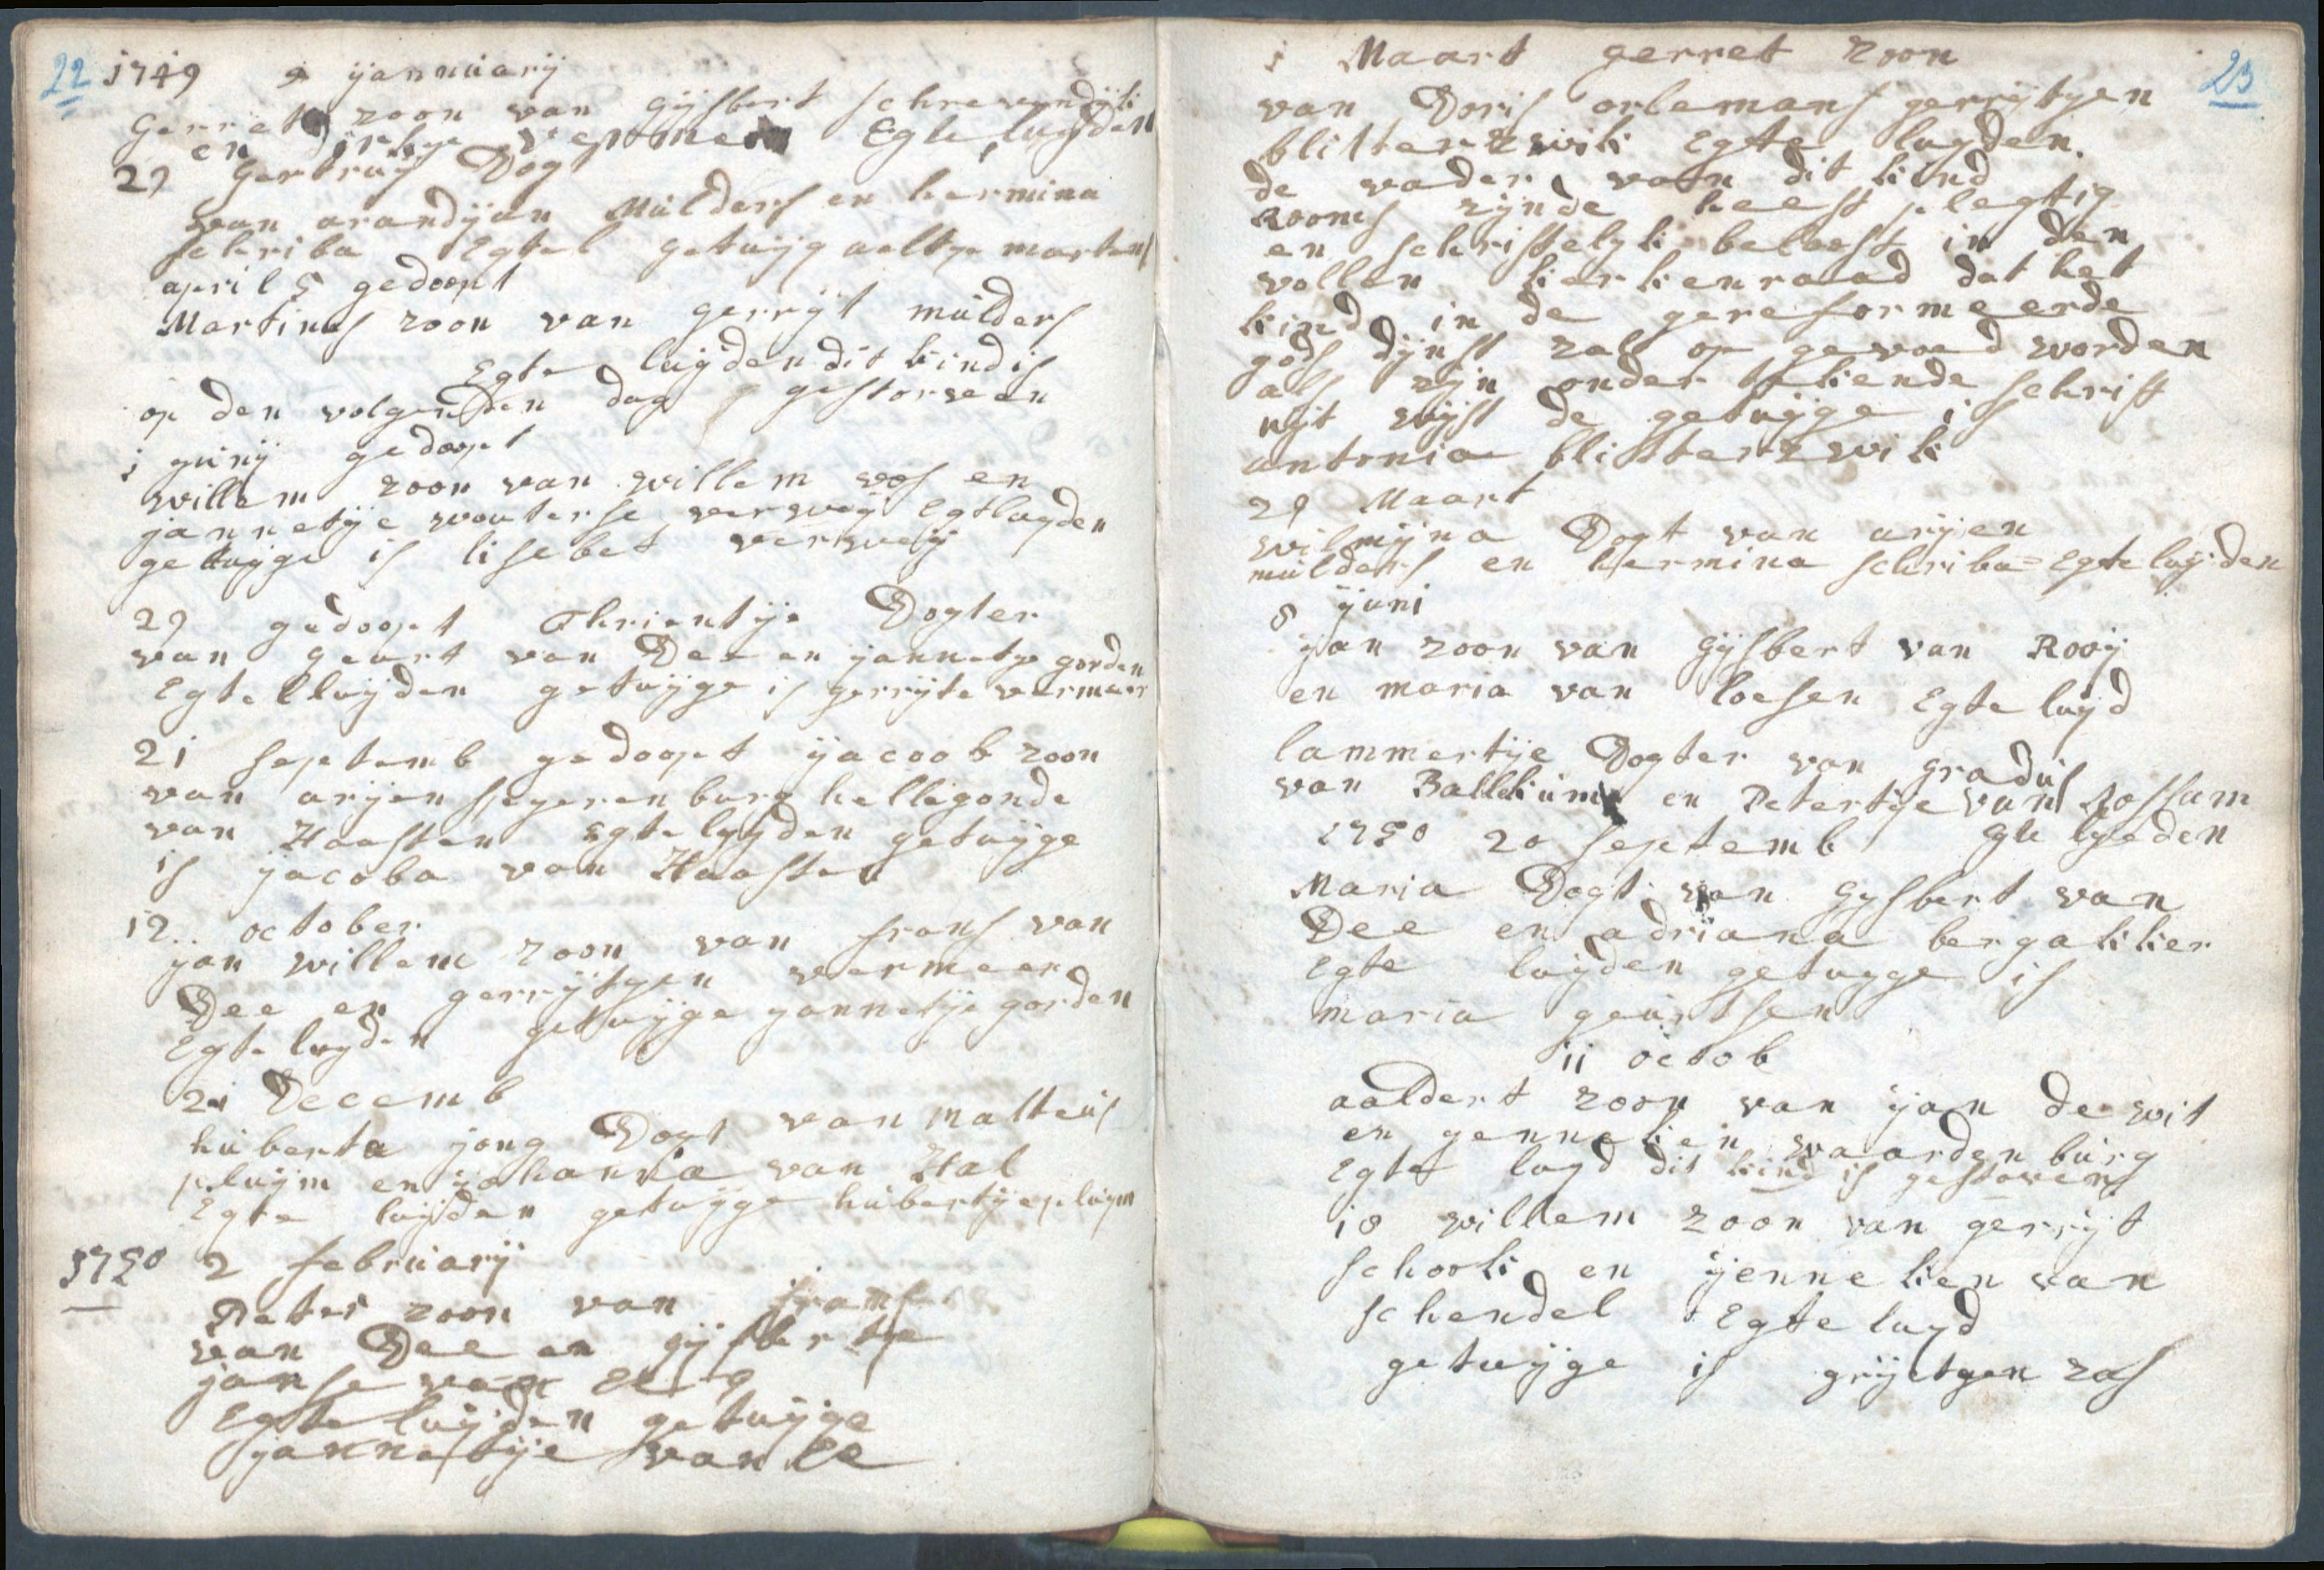 22
1749 9 ijannúarij
Gerret zoon van Gijsbert schrevendijk
en Dirkje vermeer Egte luijden
29 Gertruij Dogt
van arandijan Múlders en hermina
schriba Egtel getuijg aeltje martens
april 5 gedoopt
Martinus zoon van gerrijt múlders
Egte luijden dit kind is
op den volgenden dag gestorveen
1 junij gedoopt
willem zoon van willem vos en
jannetije wouterse verweij Egtluyden
getuijge is lisebet verweij
29 gedoopt Thrientije Dogter
van geurt van Dee en jannetye gorden
Egtelluijden getuijge is gerrijte vermeer
21 septemb gedoopt ijacoob zoon
van arijen spegerenburg helligonde
van Haaften Egte luyden getuijge
is jacoba van Haaften
12 october
jan willem zoon van frans van
Dee en gerrijtyen vermeer
Egte luyden getuijge jannetije gorden
21 Decemb
húberta jong Dogt van Matteús
pluijm en johanna van Hal
Egte luijden getuijge húbertije pluijm
1750 2 februarij
Peter zoon van frans
van Dee en gijsbertje
janse van
Egte luijden getuijge
jannetije van Ee
23
1 Maart gerret zoon
van Doris orlemans gerrijtyen
blitterzwik Egte luyden.
de vader van dit kind
Rooms zijnde heeft plegtig
en schriftelyk belooft in den
vollen kerkenraad dat het
kind in de gereformeerde
gods dijnst zal op gevoed worden
als zijn onder tekende schrift
uijt wijst de getuijge is
antonia blitterzwik
29 Maart
wilmijna Dogt van arijen
múlders en hermina schriba Egte luijden
8 ijuni
yan zoon van Gijsbert van Rooij
en maria van loesen Egte luijd
lammertije Dogter van gradús
van Ballekúm en Petertije van Rossum
1750 20 septemb Egte lyeden
Maria Dogt van Gysbert van
Dee en adriana bergakker
Egte luijden getuyge is
maria geúrtsen
11 octob
aaldert zoon van ijan de wit
en genneken waardenbúrg
Egte luyd dit kind is gestorven
18 willem zoon van gerrijt
schook en ijenneken van
schendel Egte luyd
getuijge is grijetyen zas